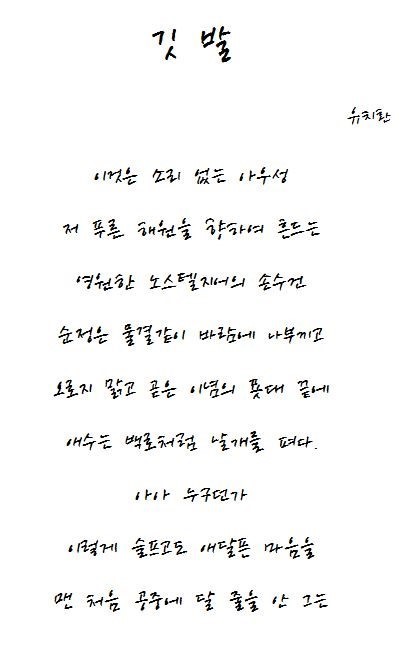 깃발
유치환
이것은 소리 없는 아우성
저 푸른 해원을 향하여 흔드는
영원한 노스텔지어의 손수건
순정은 물결같이 바람에 나부끼고
오로지 맑고 곧은 이념의 푯대 끝에
애수는 백로처럼 날개를 펴다.
아아 누구던가
이렇게 슬프고도 애달픈 마음을
맨 처음 공중에 달 줄을 안 그는